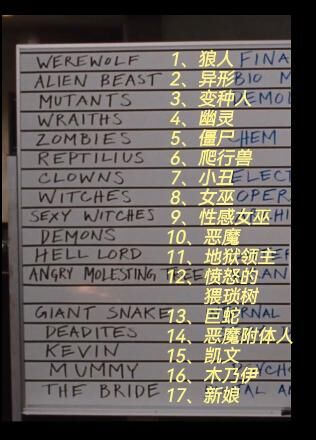 WEREWOLF 1、狼人 FINA
ALIEN BEAST 2、异形 BIO M
MUTANTS 3、变种人 DEMOL
WRAITHS 4、幽灵
ZOMBIES 5、僵尸 CHEM
REPTILIUS 6、爬行兽
CLOWNS 7、小丑 ELECT
WITCHES 8、女巫 OPER
SEXY WITCHES 9、性感女巫
DEMONS 10、恶魔
HELL LORD 11、地狱领主
ANGRY MOLESTING TREE 12、愤怒的
猥琐树
GIANT SNAKE 13、巨蛇 RNAL
DEADITES 14、恶魔附体人
KEVIN 15、凯文
MUMMY 16、木乃伊 PSYCH
THE BRIDE 17、新娘